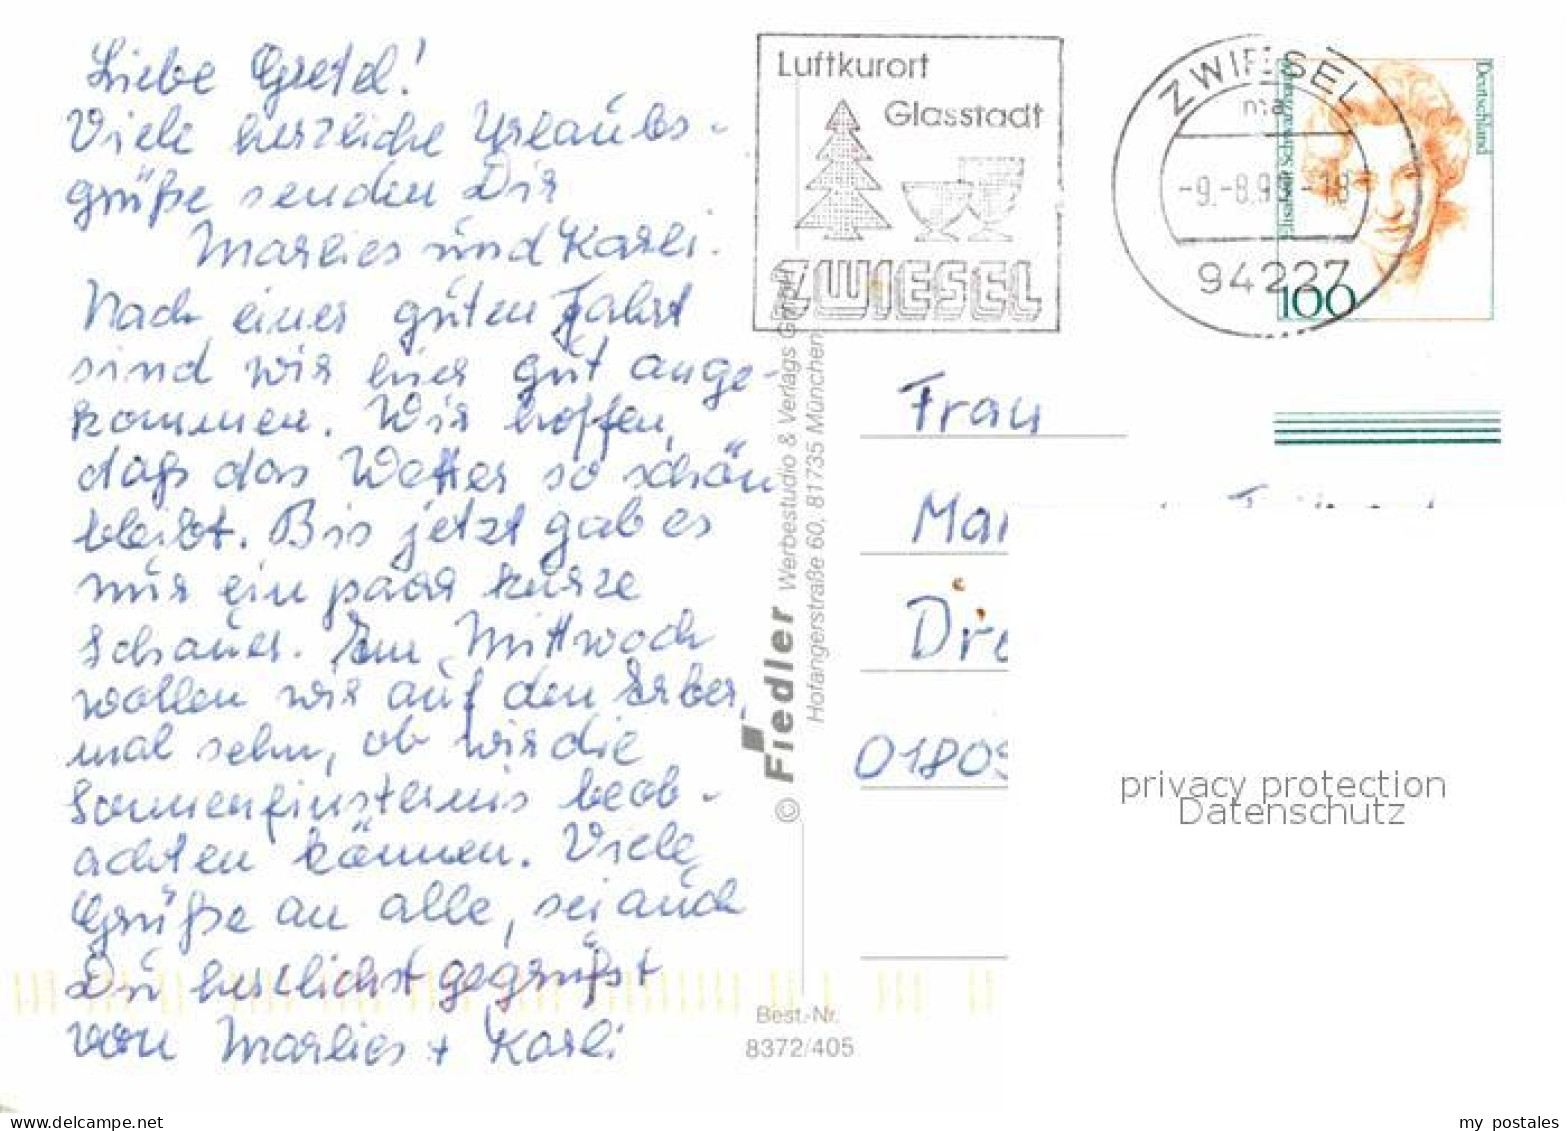 Liebe Gretel!
Viele herzliche Urlaubs-
grüße senden Dir
Marlies und Karli.
Nach einer guten Fahrt
sind wir hier gut ange-
kommen. Wir hoffen,
daß das Wetter so schön
bleibt. Bis jetzt gab es
nur ein paar kurze
Schauer. Am Mittwoch
wollen wir auf den Arber,
mal sehn, ob wir die
Sonnenfinsternis beob-
achten können. Viele
Grüße an alle, sei auch
Du herzlichst gegrüßt
von Marlies + Karli
Luftkurort
Glasstadt
ZWIESEL
ZWIESEL
-9.-8.9 -18
94227
Deutschland
100
© Fiedler Werbestudio & Verlags GmbH
Hofangerstraße 60, 81735 München
Best.-Nr.
8372/405
Frau
Mar
Dre
01809
privacy protection
Datenschutz
www.delcampe.net
my_postales